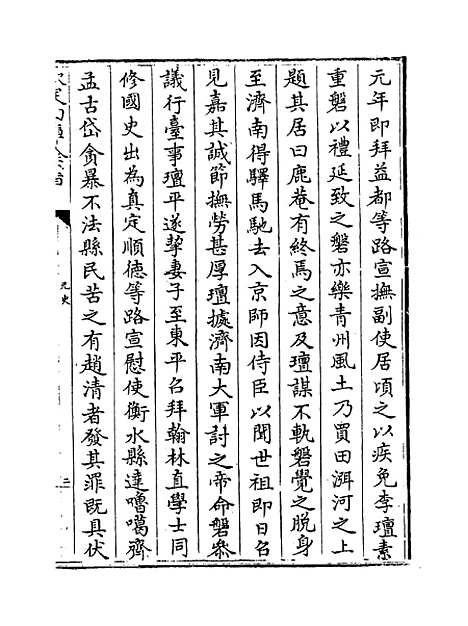 元年即拜益都等路宣撫副使居頃之以疾免李璮素
重磐以禮延致之磐亦樂青州風土乃買田洱河之上
題其居曰鹿菴有終焉之意及璮謀不軌磐覺之脫身
至濟南得驛馬馳去入京師因侍臣以聞世祖即日召
見嘉其誠節撫勞甚厚璮據濟南大軍討之帝命磐參
議行臺事璮平遂挈妻子至東平召拜翰林直學士同
修國史出為真定順德等路宣慰使衡水縣達嚕噶齊
孟古岱貪暴不法縣民苦之有趙清者發其罪既具伏
元史
二